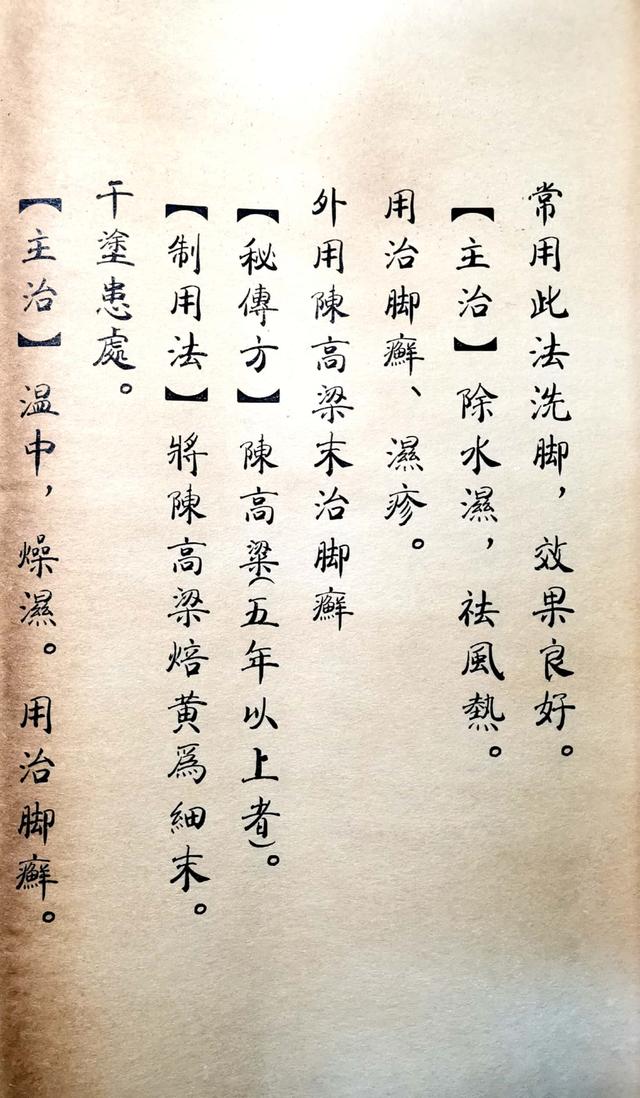 常用此法洗脚，效果良好。
【主治】除水濕，祛風熱。
用治脚癬、濕疹。
外用陳高梁末治脚癬
【秘傳方】陳高粱(五年以上者)。
【制用法】將陳高梁焙黄爲細末。
干塗患處。
【主治】温中，燥濕。用治脚癬。